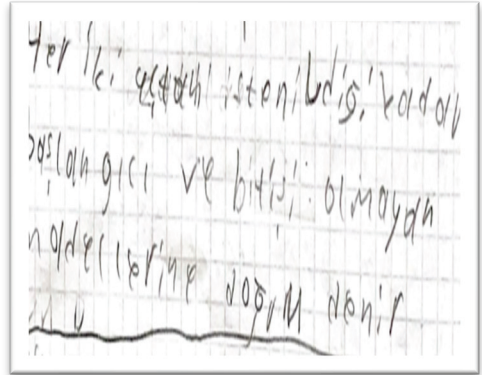 Her iki uçtan istenildiği kadar
başlangıcı ve bitişi olmayan
modellerine doğru denir